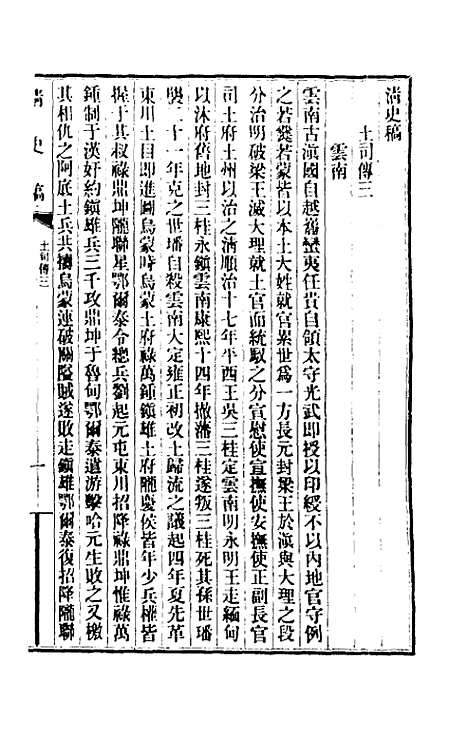 清史稿
土司傳三
雲南
雲南古滇國自越嶲蠻夷任貴自領太守光武即授以印綬不以內地官守例
之若爨若蒙皆以本土大姓就官累世為一方長元封梁王於滇與大理之段
分治明破梁王滅大理就土官而統馭之分宣慰使宣撫使安撫使正副長官
司土府土州以治之清順治十七年平西王吳三桂定雲南明永明王走緬甸
以沐府舊地封三桂永鎮雲南康熙十四年撤藩三桂遂叛三桂死其孫世璠
與二十一年克之世璠自殺雲南大定雍正初改土歸流之議起四年夏先革
東川土目即進圖烏蒙時烏蒙土府祿萬鍾鎮雄土府隴慶侯皆年少兵權皆
握于其叔祿鼎坤隴聯星鄂爾泰令總兵劉起元屯東川招降祿鼎坤惟祿萬
鍾制于漢奸約鎮雄兵三千攻鼎坤于魯甸鄂爾泰遣游擊哈元生敗之又檄
其相仇之阿底土兵共擣烏蒙連破關隘賊遂敗走鎮雄鄂爾泰復招降隴聯
清史稿
土司傳三
一